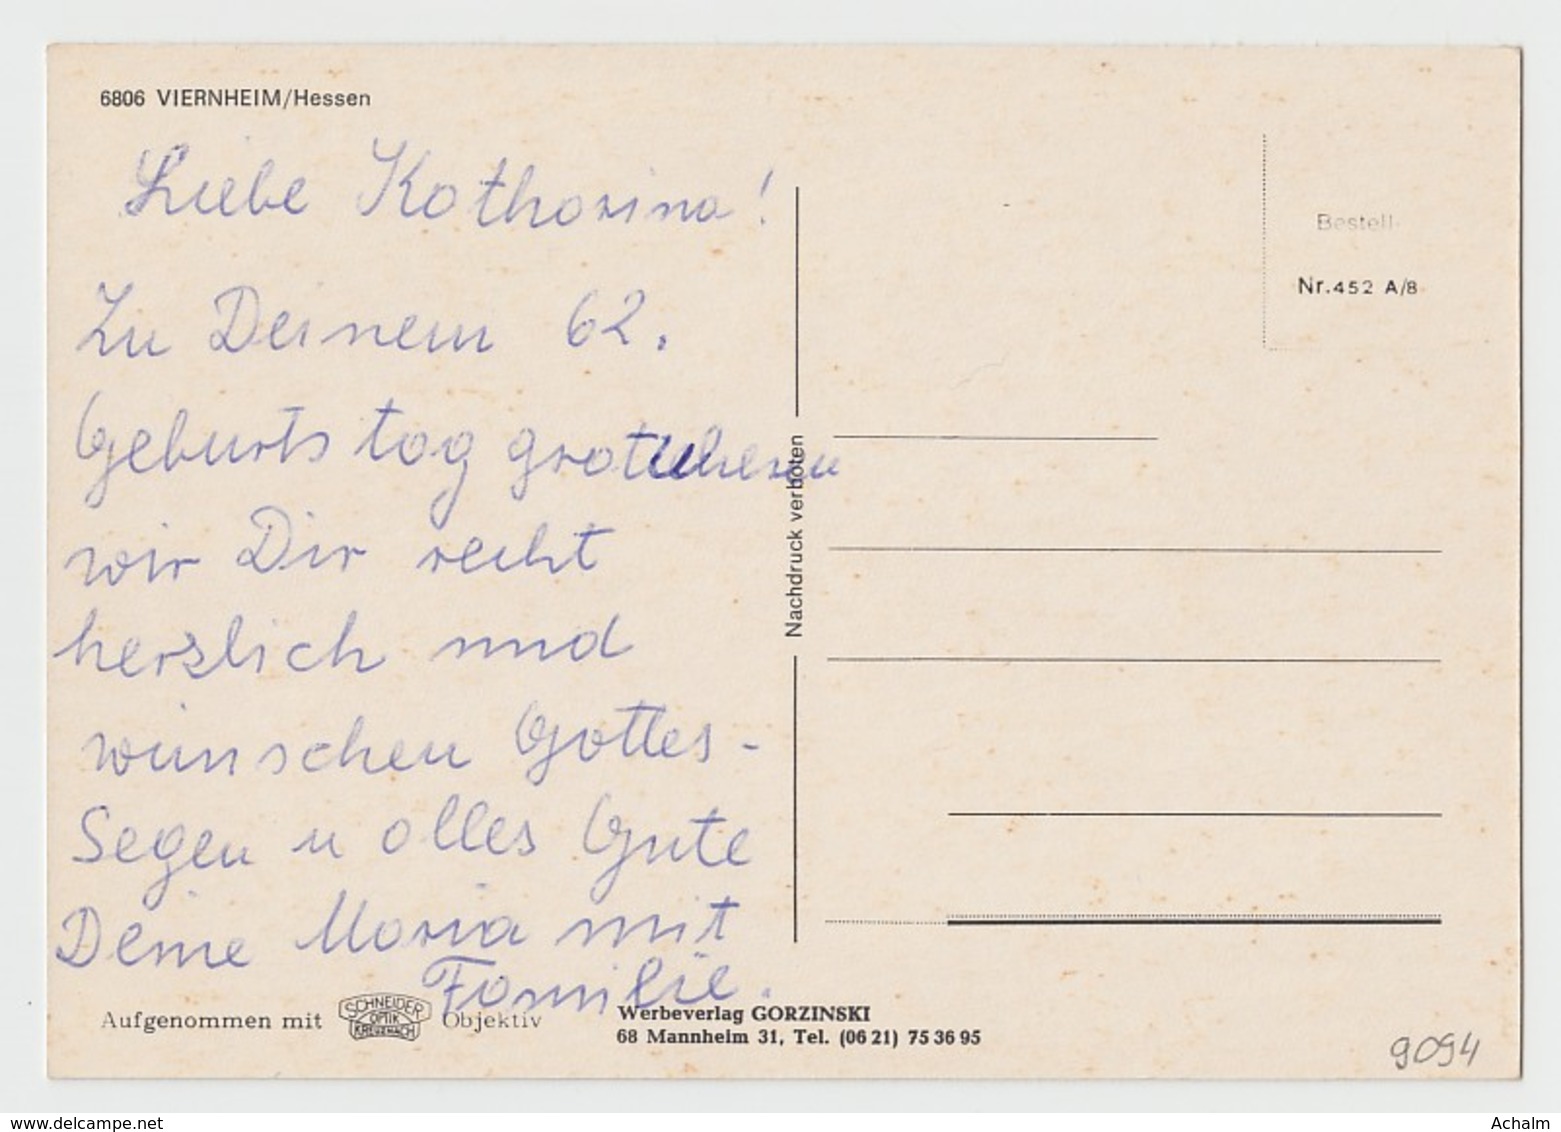 6806 VIERNHEIM/Hessen
Liebe Katharina!
Zu Deinem 62.
Geburtstag gratulieren
wir Dir recht
herzlich und
wünschen Gottes-
Segen u alles Gute
Deine Maria mit
Familie.
Aufgenommen mit SCHNEIDER OPTIK KREUZNACH Objektiv
Werbeverlag GORZINSKI
68 Mannheim 31, Tel. (06 21) 75 36 95
Nachdruck verboten
Bestell-
Nr.452 A/8
9094
www.delcampe.net
Achalm